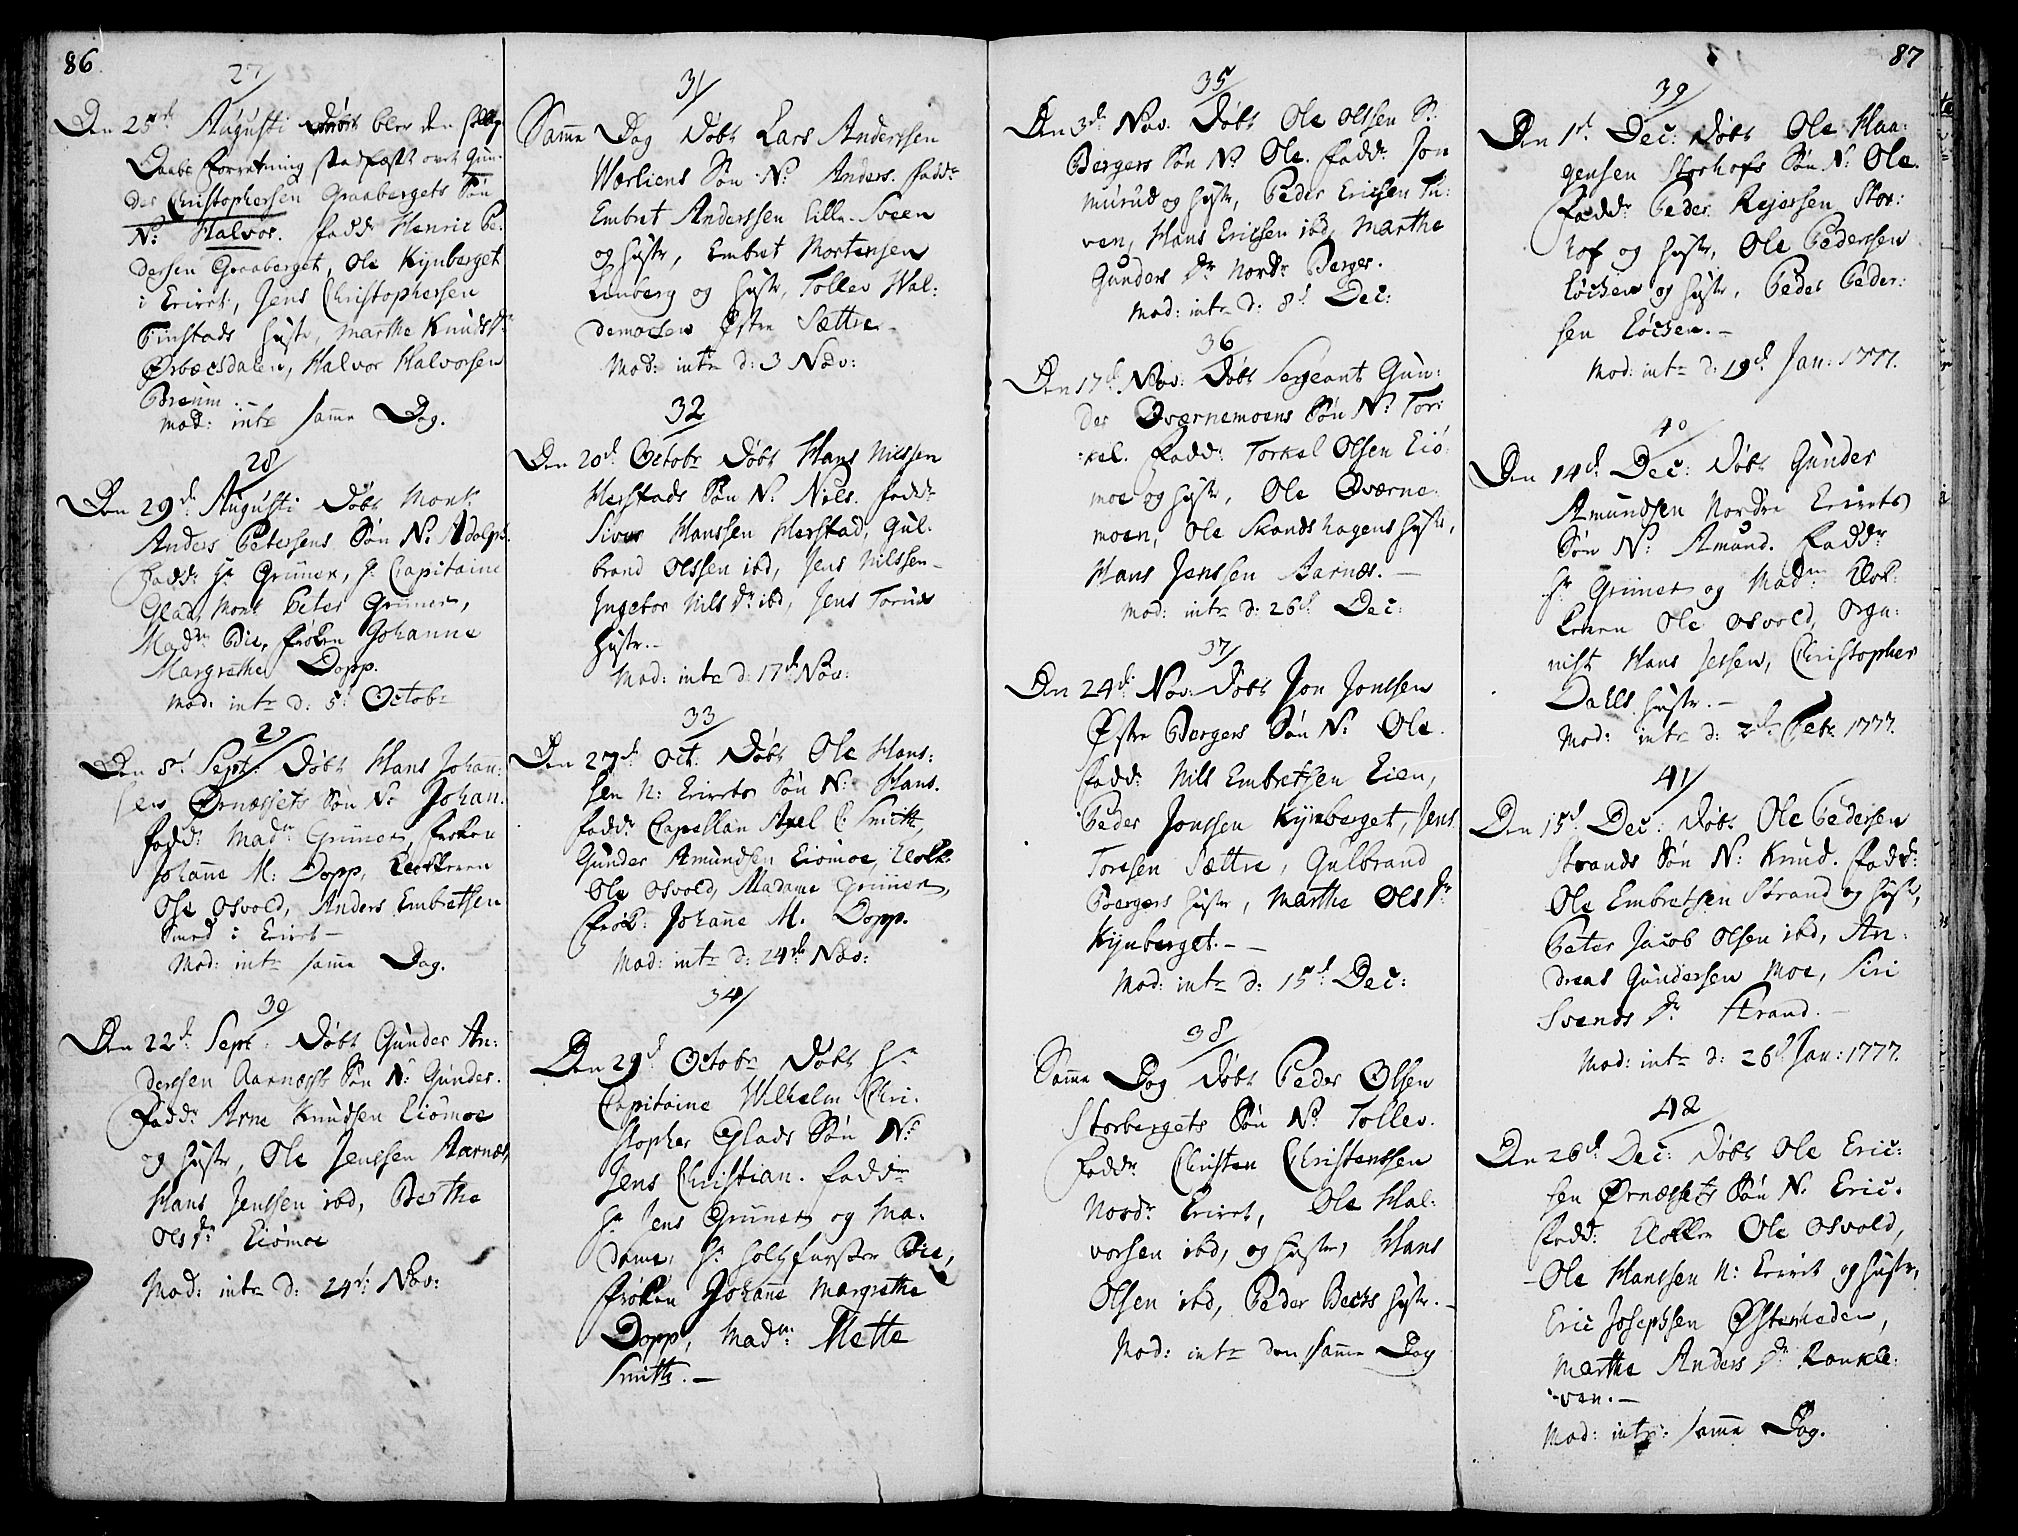 86
27/
Den 25de Augusti blev den
Daabs Forretning stadfæst over Gun-
der Christophersen Graabergets Søn
N: Halvor. Fadd: Henric Pe-
dersen Graaberget, Ole Kynberget
i Eivet, Jens Christophersen
Finstads Hustr, Marthe Knuds Dr
Ørbæcsdalen, Halvor Halvorsen
Breum.
Mod: intr samme Dag.
28/
Den 29de Augusti Døbt Monsr
Anders Petersens Søn N: Adolph.
Fadd: Hr Grüner, Hr Capitaine
Glad, Monsr Peter Grüner,
Madm Bie, Frøken Johanne
Margrethe Dopp.
Mod: intr d: 5t Octobr
29/
Den 8d Sept: Døbt Hans Johan-
sen Ørnæssets Søn N: Johan.
Fadd: Madm Grüner, Frøken
Johanne M: Dopp, Klockeren
Ole Osvold, Anders Embretsen
Smed i Eivet
Mod: intr samme Dag.
30/
Den 22d Sept: Døbt Gunder An-
derssen Aarnæss Søn N: Gunder.
Fadd: Arne Knudsen Eiømoe
og Hustr, Ole Jenssen Aarnæs,
Hans Jenssen ibd, Berthe
Ols Dr Eiømoe
Mod: intr d: 24d: Nov:
31/
Samme Dag Døbt Lars Anderssen
Wærliens Søn N: Anders. Fadd:
Embret Anderssen Lille-Sveen
og Hustr, Embret Mortensen
Lunberg og Hustr, Tollev Wal-
demorsen Østre Sættre
Mod: intr d: 3 Nov:
32
Den 20d Octobr Døbt Hans Nilssen
Herstads Søn N: Nils. Fadd:
Siver Hanssen Herstad, Gul-
brand Olssen ibd, Jens Nilssen
Ingebor Nils Dr ibd, Jens Toruds
Hustr.
Mod: intr d: 17d Nov:
33
Den 27d Oct: Døbt Ole Hans-
sen N: Eivets Søn N: Hans.
Fadd: Capellan Axel C: Smith,
Gunder Amundsen Eiømoe, Klock:
Ole Osvold, Madame Grüner,
Frøk: Johanne M. Dopp.
Mod: intr d: 24de Nov:
34/
Den 29d Octobr Døbt Hr
Capitaine Wilhelm Chri-
stopher Glads Søn N:
Jens Christian. Fadd:
Hr Jens Grüner og Ma-
dame, Hr Holtzfurster Bie,
Frøken Johanne Margrethe
Dopp, Madm: Mette
Smith.
35/
Den 3d Nov. Døbt Ole Olssen S:
Bergers Søn N: Ole. Fadd: Jon
Murud og Hustr, Peder Ericsen Tu-
ven, Hans Ericsen ibd, Marthe
Gunders Dr Nordr Berger.
Mod: intr d: 8d Dec:
36
Den 17d Nov: Døbt Sergeant Gun-
der Qværnemoens Søn N: Tor-
kel. Fadd: Torkel Olsen Eiø-
moe og Hustr, Ole Qværne-
moen, Ole Skandshagens Hustr,
Hans Jenssen Aarnæs.
Mod: intr d: 26d Dec:
37/
Den 24d Nov: Døbt Jon Jonssen
Østre Bergers Søn N: Ole.
Fadd: Nils Embretsen Eien,
Peder Jonssen Kynberget, Jens
Toresen Sættre, Gulbrand
Bergers Hustr, Marthe Ols Dr
Kynberget.
Mod: intr d: 15d Dec:
38/
Samme Dag Døbt Peder Olsen
Storbergets Søn N: Tollev.
Fadd: Christen Christenssen
Nordr Eivet, Ole Hal-
vorsen ibd, og Hustr, Hans
Olsen ibd, Peder Becks Hustr.
Mod: intr den samme Dag
87
39/
Den 1d Dec: Døbt Ole Haa-
gensen Storhofs Søn N: Ole.
Fadd: Peder Rejersen Stor-
hof og Hustr, Ole Pedersen
Løchen og Hustr, Peder Peder-
sen Løchen.
Mod: intr d: 19d Jan: 1777.
40/
Den 14d Dec: Døbt Gunder
Amundsen Nordre Eivets
Søn N: Amund. Fadd:
Hr Grüner og Madm Klok-
keren Ole Osvold, Orga-
nist Hans Jessen, Christopher
Dahls Hustr.
Mod: intr d: 2d Feb: 1777.
41/
Den 15d Dec: Døbt Ole Pedersen
Strands Søn N: Knud. Fadd:
Ole Embretsen Strand og Hustr,
Peter Jacob Olsen ibd, An-
dreas Gundersen Moe, Siri
Svends Dr Strand.
Mod: intr d: 26d Jan: 1777.
42
Den 26d Dec: Døbt Ole Eric-
sen Ørnæssets Søn N: Eric.
Fadd: Klokker Ole Osvold,
Ole Hanssen N: Eivet og Hustr,
Eric Josephsen Østerheden,
Marthe Anders Dr Rankle-
ven.
Mod: intr: samme Dag.